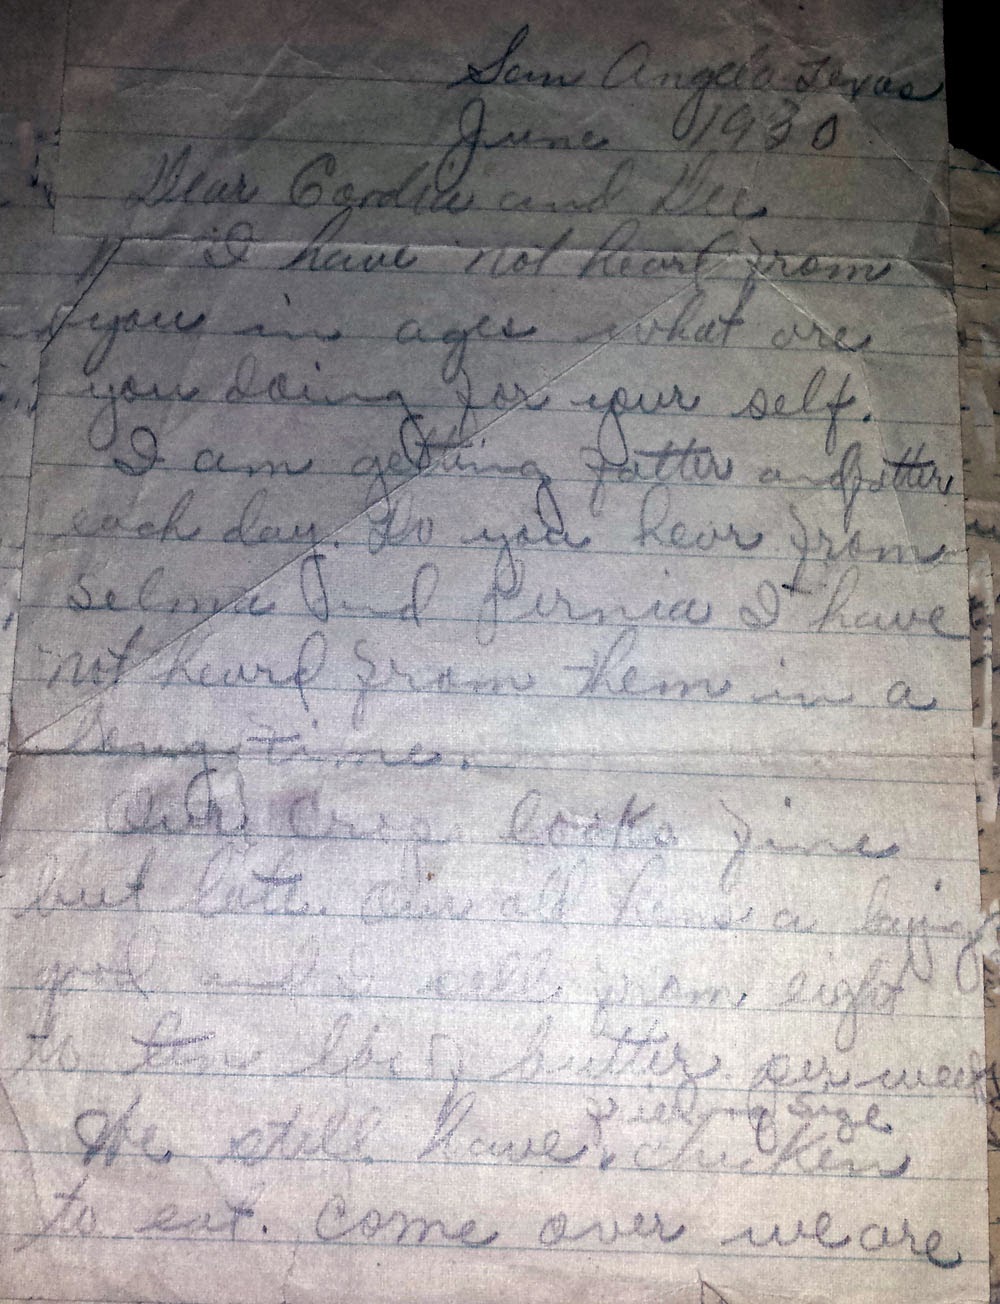 San Angelo Texas
June 1930
Dear Cordia and Dee
I have not heard from
you in ages what are
you doing for your self.
I am getting fatter and fatter
each day. Do you hear from
Selma and I have
not heard from them in a
long time.
Our crops looks fine
but late. Our old hens a laying
good and I sell from eight
to ten lbs of butter week
frying size
We still have chicken
to eat. Come over we are